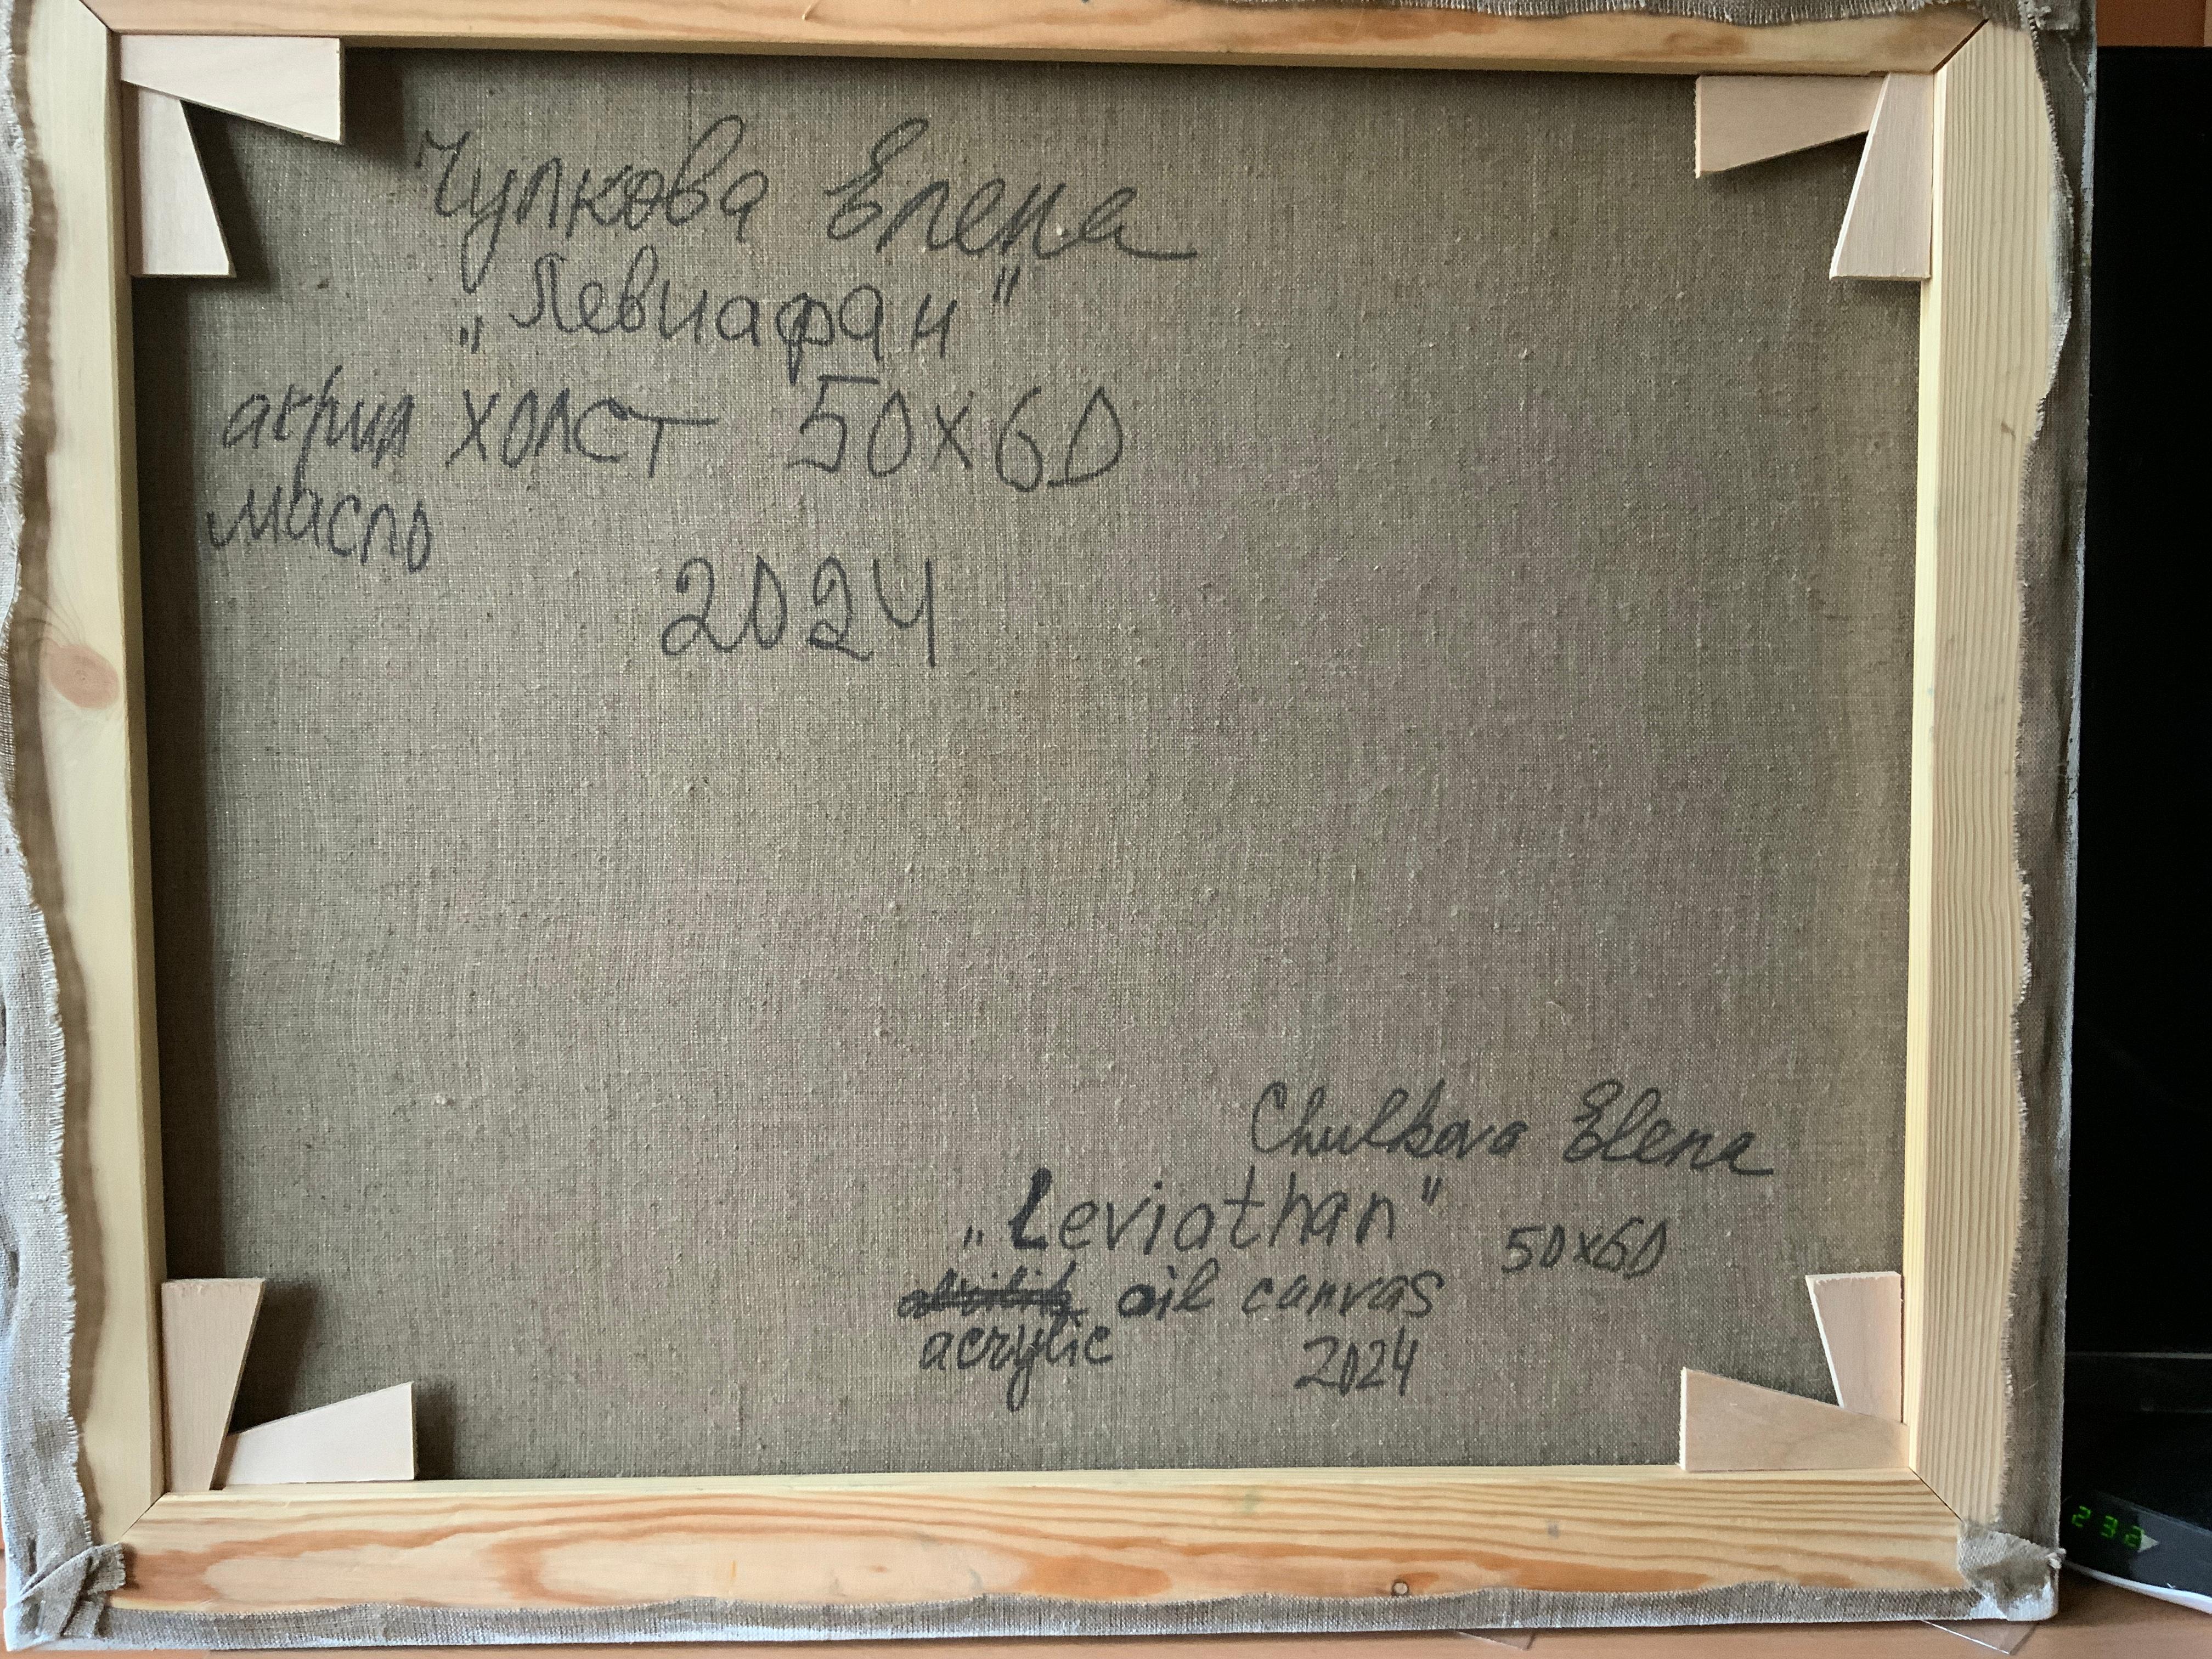 Чулкова Елена
„Левиафан"
акрил холст 50х60
масло
2024
Chulkova Elena
„Leviathan" 50x60
oil canvas
acrylic 2024
232